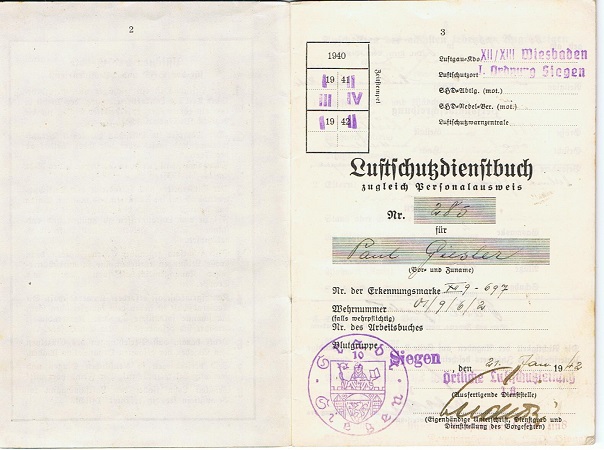 2
3
1940
19 41
I II
III IV
19 42
I II
Zeitstempel
Luftgau-Kdo XII/XIII Wiesbaden
Luftschutzort I. Ordnung Siegen
SHD-Abtlg. (mot.)
SHD-Nebel-Ber. (mot.)
Luftschutzwarnzentrale
Luftschutzdienstbuch
zugleich Personalausweis
Nr. 285
für
Paul Giesler
(Vor- und Zuname)
Nr. der Erkennungsmarke 9-697
Wehrnummer 01/9/6/2
(falls wehrpflichtig)
Nr. des Arbeitsbuches
Blutgruppe
Siegen den 21. Jan 1942
Örtliche Luftschutzleitung
(Ausfertigende Dienststelle)
(Eigenhändige Unterschrift, Dienstgrad und
Dienststellung des Vorgesetzten)
Stadt Siegen
10